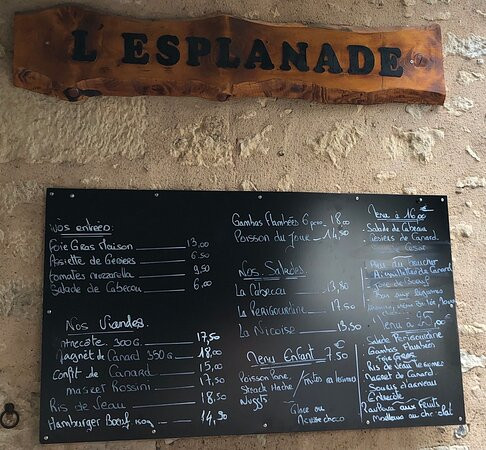 L'ESPLANADE
Nos entrées
Foie Gras Maison 13,00
Assiette de Gesiers 6.50
Tomates mozzarella 9,50
Salade de Cabecou 6,00
Nos Viandes.
Entrecôte 300 G. 17,50
Magret de Canard 350 G 18,00
Confit de Canard 15,00
Magret Rossini 17,50
Ris de Veau 18,50
Hamburger Boeuf 14,50
Gambas Flambées 6 18,00
Poisson du Jour 14,50
Nos Salades
La Cabecou 13,50
La Perigourdine 17.50
La Nicoise 13,50
Menu Enfant 7.50€
Poisson Pané
Steack Haché / Frites ou legumes
Nuggets
Glace ou
Menu à 16,00
Salade de Cabecou
Gesiers de Canard
Menu du boucher
Aiguillettes de Canard
Menu à
Salade Perigourdine
Gambas Flambées
Foie Gras
Ris de Veau
Magret de Canard
Souris d'agneau
Entrecote
aux Fruits
Moelleux au chocolat